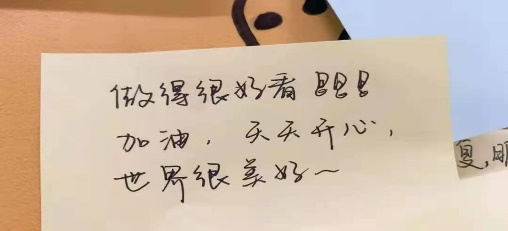 做得很好看昌昌昌
加油，天天开心，
世界很美好～
夏，明